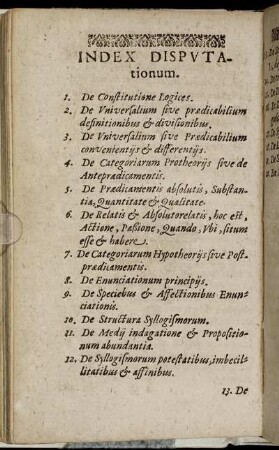 INDEX DISPVTA-
tionum.
1. De Constitutione Logices.
2. De Vniversalium sive prædicabilium
definitionibus & divisionibus.
3. De Vniversalium sive Prædicabilium
convenientijs & differentijs.
4. De Categoriarum Protheorijs sive de
Antepraedicamentis.
5. De Prædicamentis absolutis, Substan-
tia, Quantitate & Qualitate.
6. De Relatis & Absolutorelatis, hoc est,
Actione, Passione, Quando, Vbi, situm
esse & habere.
7. De Categoriarum Hypotheorijs sive Post-
prædicamentis.
8. De Enunciationum principijs.
9. De Speciebus & Affectionibus Enun-
ciationis.
10. De Structura Syllogismorum.
11. De Medij indagatione & Propositio-
num abundantia.
12. De Syllogismorum potestatibus, imbecil-
litatibus & affinibus.
13. De